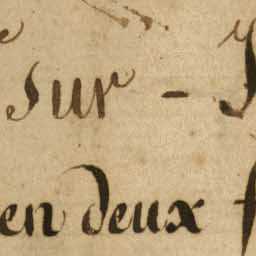 sur -
en deux